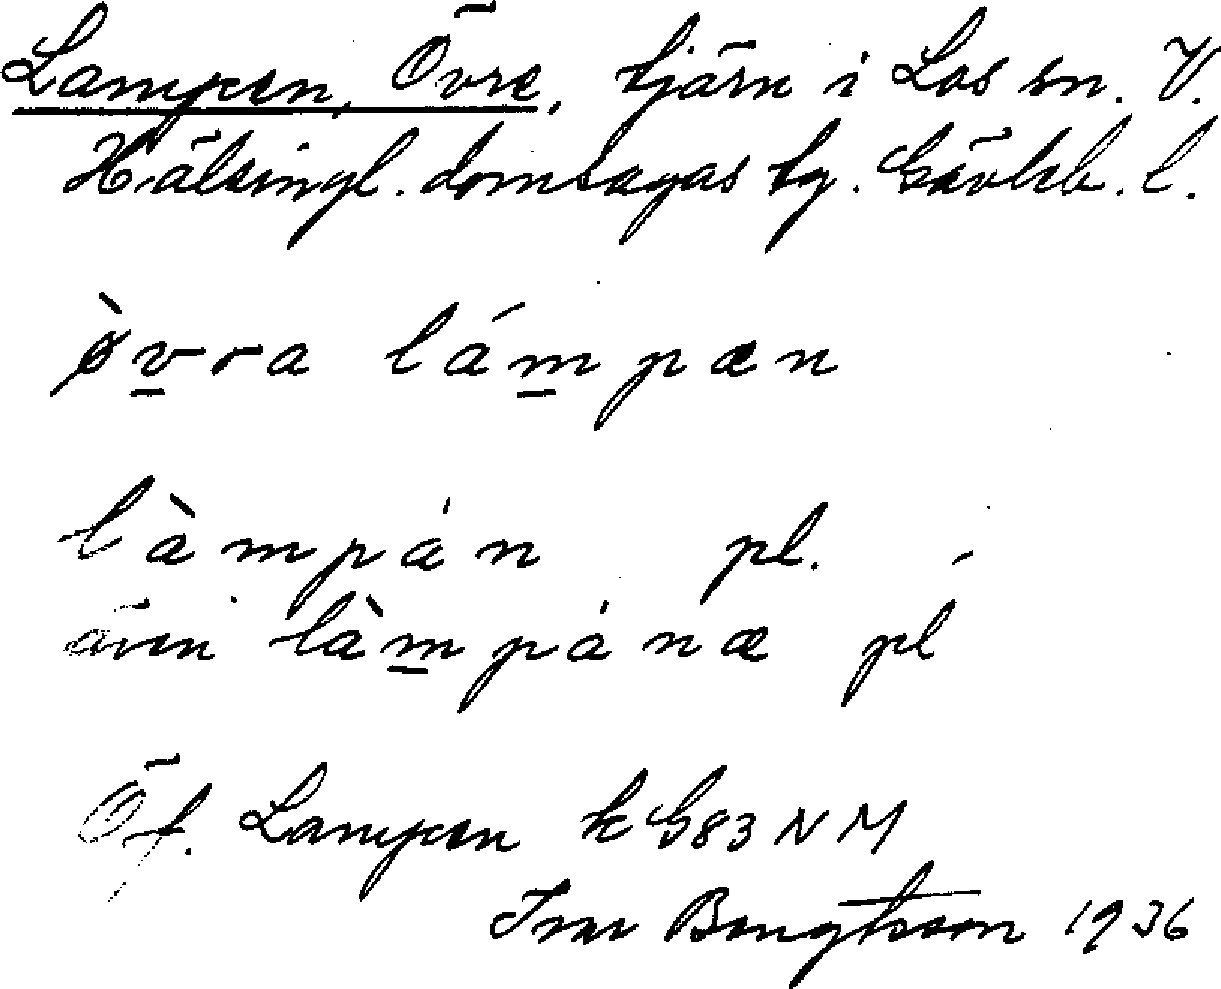 Lampen, Övre, tjärn i Los sn. V.
Hälsingl. domsagas tg. Gävleb. l.
ø̀vra lámpæn
làmpán pl.
även làmpánæ pl
Öf. Lampen k G83 NM
Ivar Bengtsson 1936